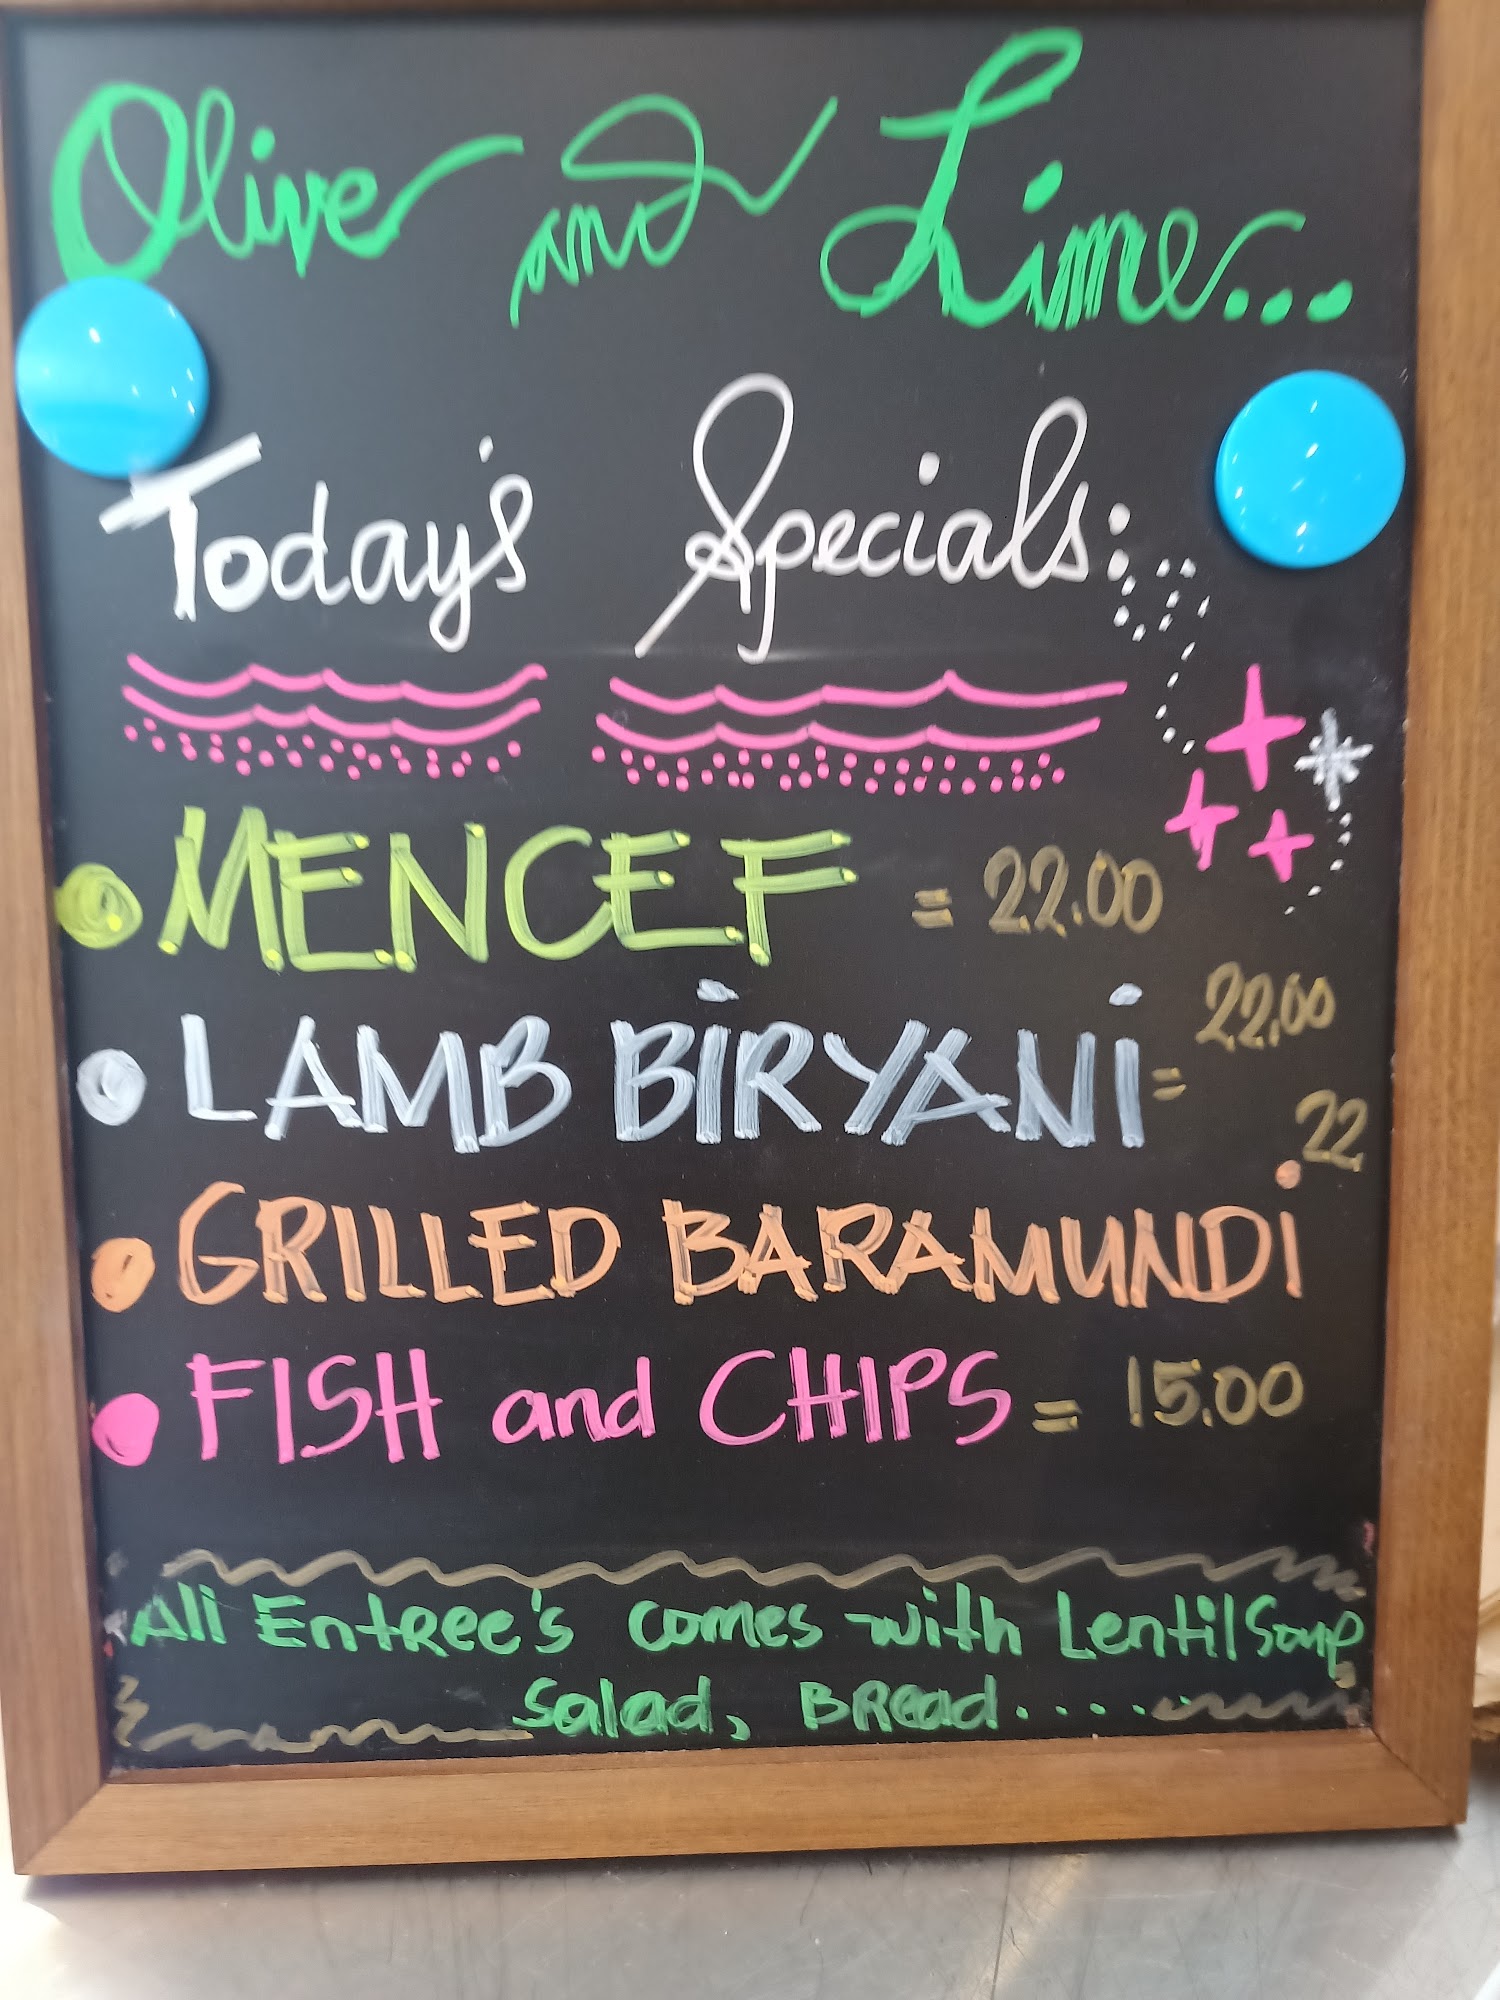 Olive and Lime...
Today's Specials:
MENCEF = 22.00
LAMB BIRYANI = 22.00
GRILLED BARAMUNDI 22
FISH and CHIPS = 15.00
All Entree's comes with Lentil Soup
Salad, Bread.....